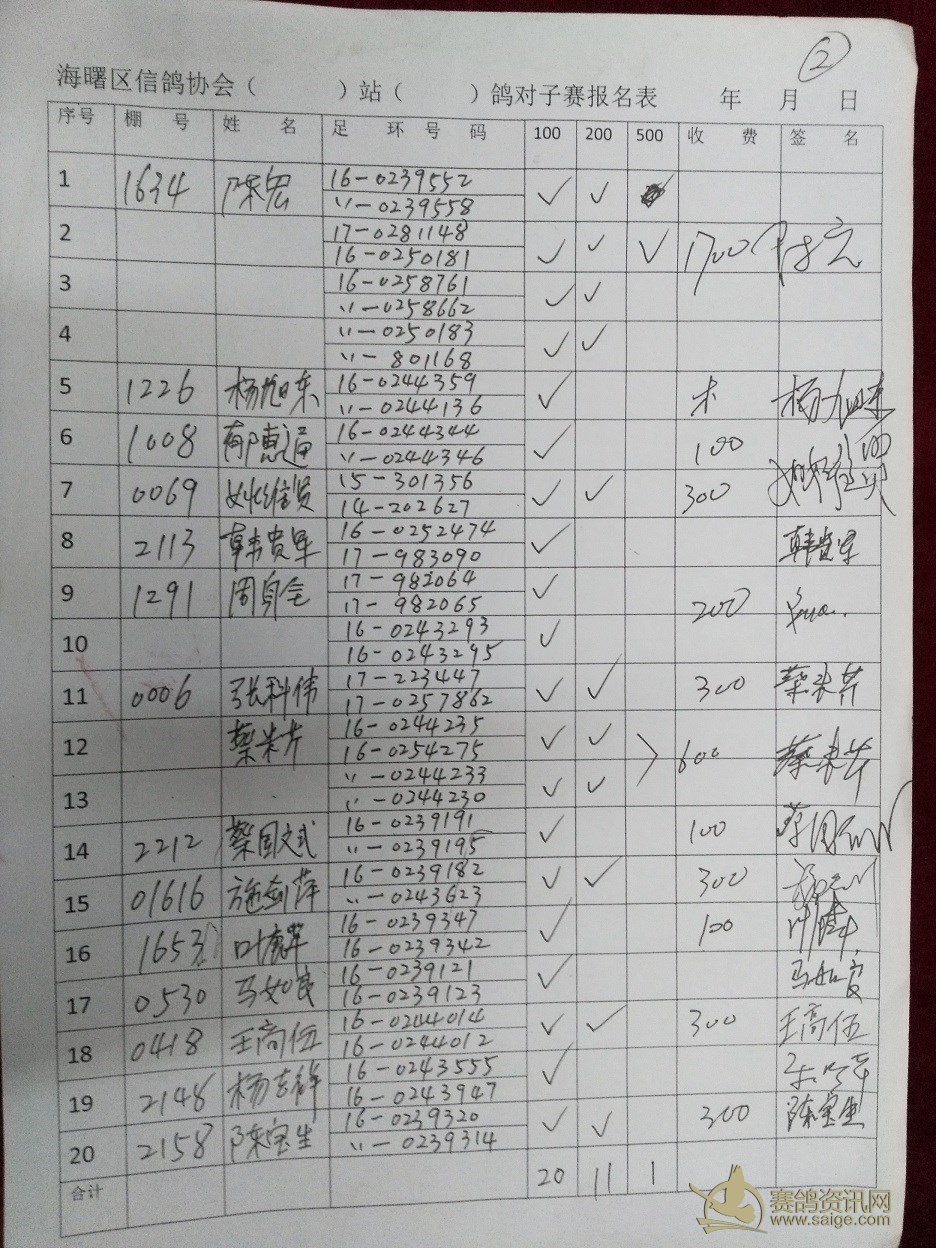 ②
海曙区信鸽协会（ ）站（ ）鸽对子赛报名表 年 月 日
序号 棚 号 姓 名 足 环 号 码 100 200 500 收 费 签 名
1 1634 陈宏 16-0239552 ✓ ✓
〃-0239558
2 17-0281148 ✓ ✓ ✓ 1700
16-0250181
3 16-0258761 ✓ ✓
〃-0258662
4 〃-0250183 ✓ ✓
〃-801168
5 1226 杨旭东 16-0244359 ✓ 杨旭东
〃-0244136
6 1008 16-0244344 ✓ 100
〃-0244346
7 0069 姚维贤 15-301356 ✓ ✓ 300 姚维贤
14-202627
8 2113 韩贵军 16-0252474 ✓ 韩贵军
17-983090
9 1291 周自全 17-982064 ✓ 200
17-982065
10 16-0243293 ✓
16-0243295
11 0006 张科伟 17-223447 ✓ ✓ 300 蔡来芹
17-0257862
12 蔡来芹 16-0244235 ✓ ✓ 600 蔡来芹
16-0254275
13 〃-0244233 ✓ ✓
〃-0244230
14 2212 蔡国文 16-0239191 ✓ 100
〃-0239195
15 01616 施剑萍 16-0239182 ✓ ✓ 300
〃-0243623
16 1653 16-0239347 ✓ 100
16-0239342
17 0530 马如良 16-0239121 ✓ 马如良
16-0239123
18 0418 王高伍 16-0244014 ✓ ✓ 300 王高伍
16-0244012
19 2148 杨志祥 16-0243555 ✓
16-0243947
20 2158 陈宝生 16-0239320 ✓ ✓ 300 陈宝生
〃-0239314
合计 20 11 1
赛鸽资讯网
www.saige.com